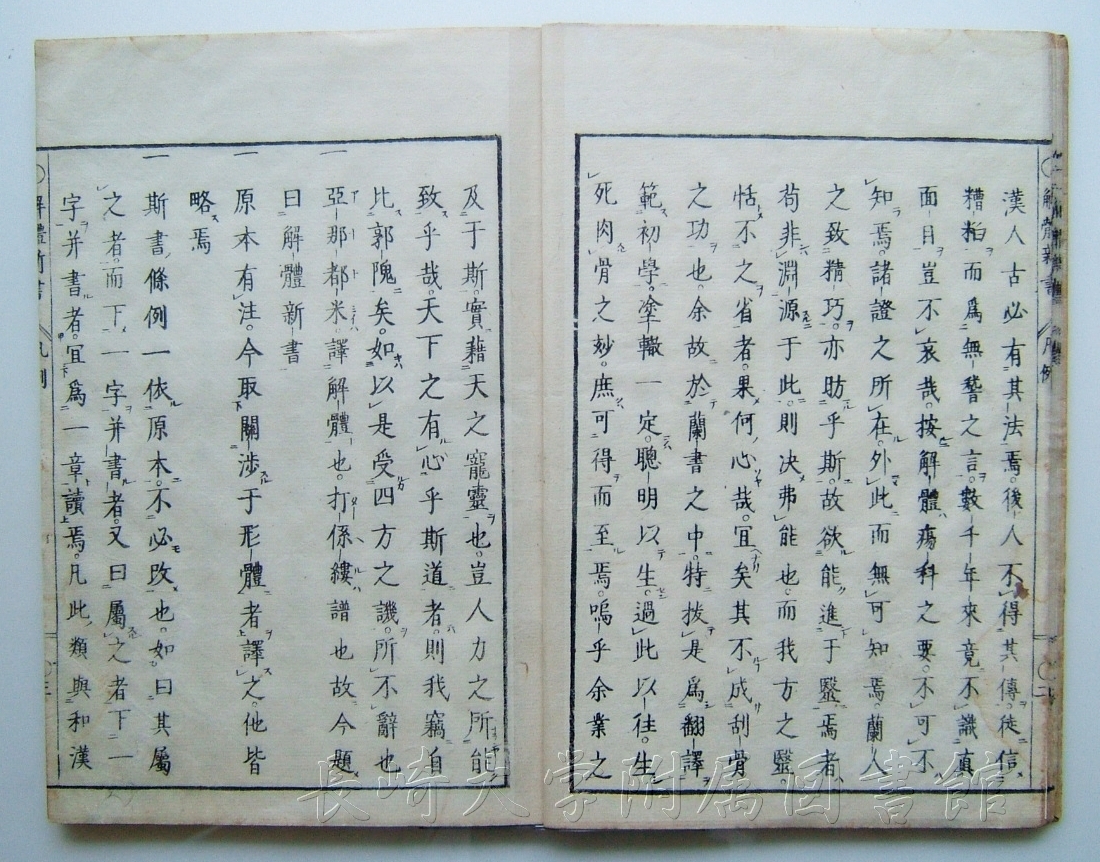 漢人古必有其法焉。後人不得其傳。徒信
糟粕而爲無稽之言。數千年來竟不識眞
面目。豈不哀哉。按解體瘍科之要。不可不
知焉。諸證之所在。外此而無可知焉。蘭人
之致精巧。亦昉乎斯。故欲能進于毉焉者。
苟非淵源于此。則決弗能也。而我方之毉
恬不之省者。果何心哉。宜矣其不成刮骨
之功也。余故於蘭書之中。特拔是爲翻譯
範初學。塗轍一定。聰明以生。過此以往。生
死肉骨之妙。庶可得而至焉。嗚乎余業之
及于斯。實藉天之寵靈也。豈人力之所能
致乎哉。天下之有心乎斯道者。則我竊自
比郭隗矣。如以是受四方之譏。所不辭也
一亞那都米。譯解體也。打係縷。譜也。故今題
曰解體新書
一原本有注。今取關涉于形體者譯之。他皆
略焉
一斯書條例一依原本。不必改也。如曰其屬
之者。而下一字并書者。又曰屬之者下一
字并書者。宜爲一章讀焉。凡此類與和漢
解體新書 凡例
長崎大学附属図書館